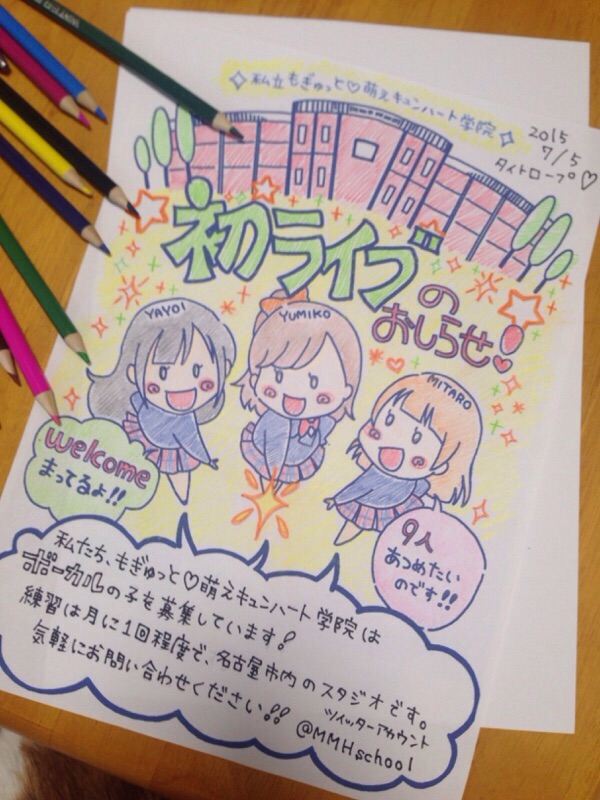 私立もぎゅっと♡萌えキュンハート学院
2015
7/5
タイトロープ♡
初ライブ
の
おしらせ!
YAYOI
YUMIKO
MITARO
welcome
まってるよ!!
9人
あつめたい
のです!!
私たち、もぎゅっと♡萌えキュンハート学院は
ボーカルの子を募集しています!
練習は月に1回程度で、名古屋市内のスタジオです。
気軽にお問い合わせください!!
ツイッターアカウント
@MMHschool